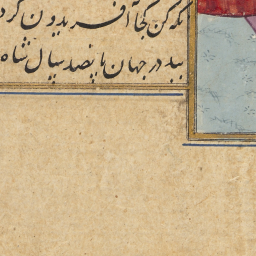 نگه کن کجا آفریدون گرد
ببد در جهان پانصد سال شاه